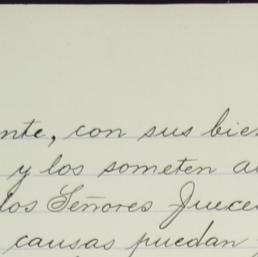 nte, con sus bien
y los someten a
los Señores Jueces
causas puedan